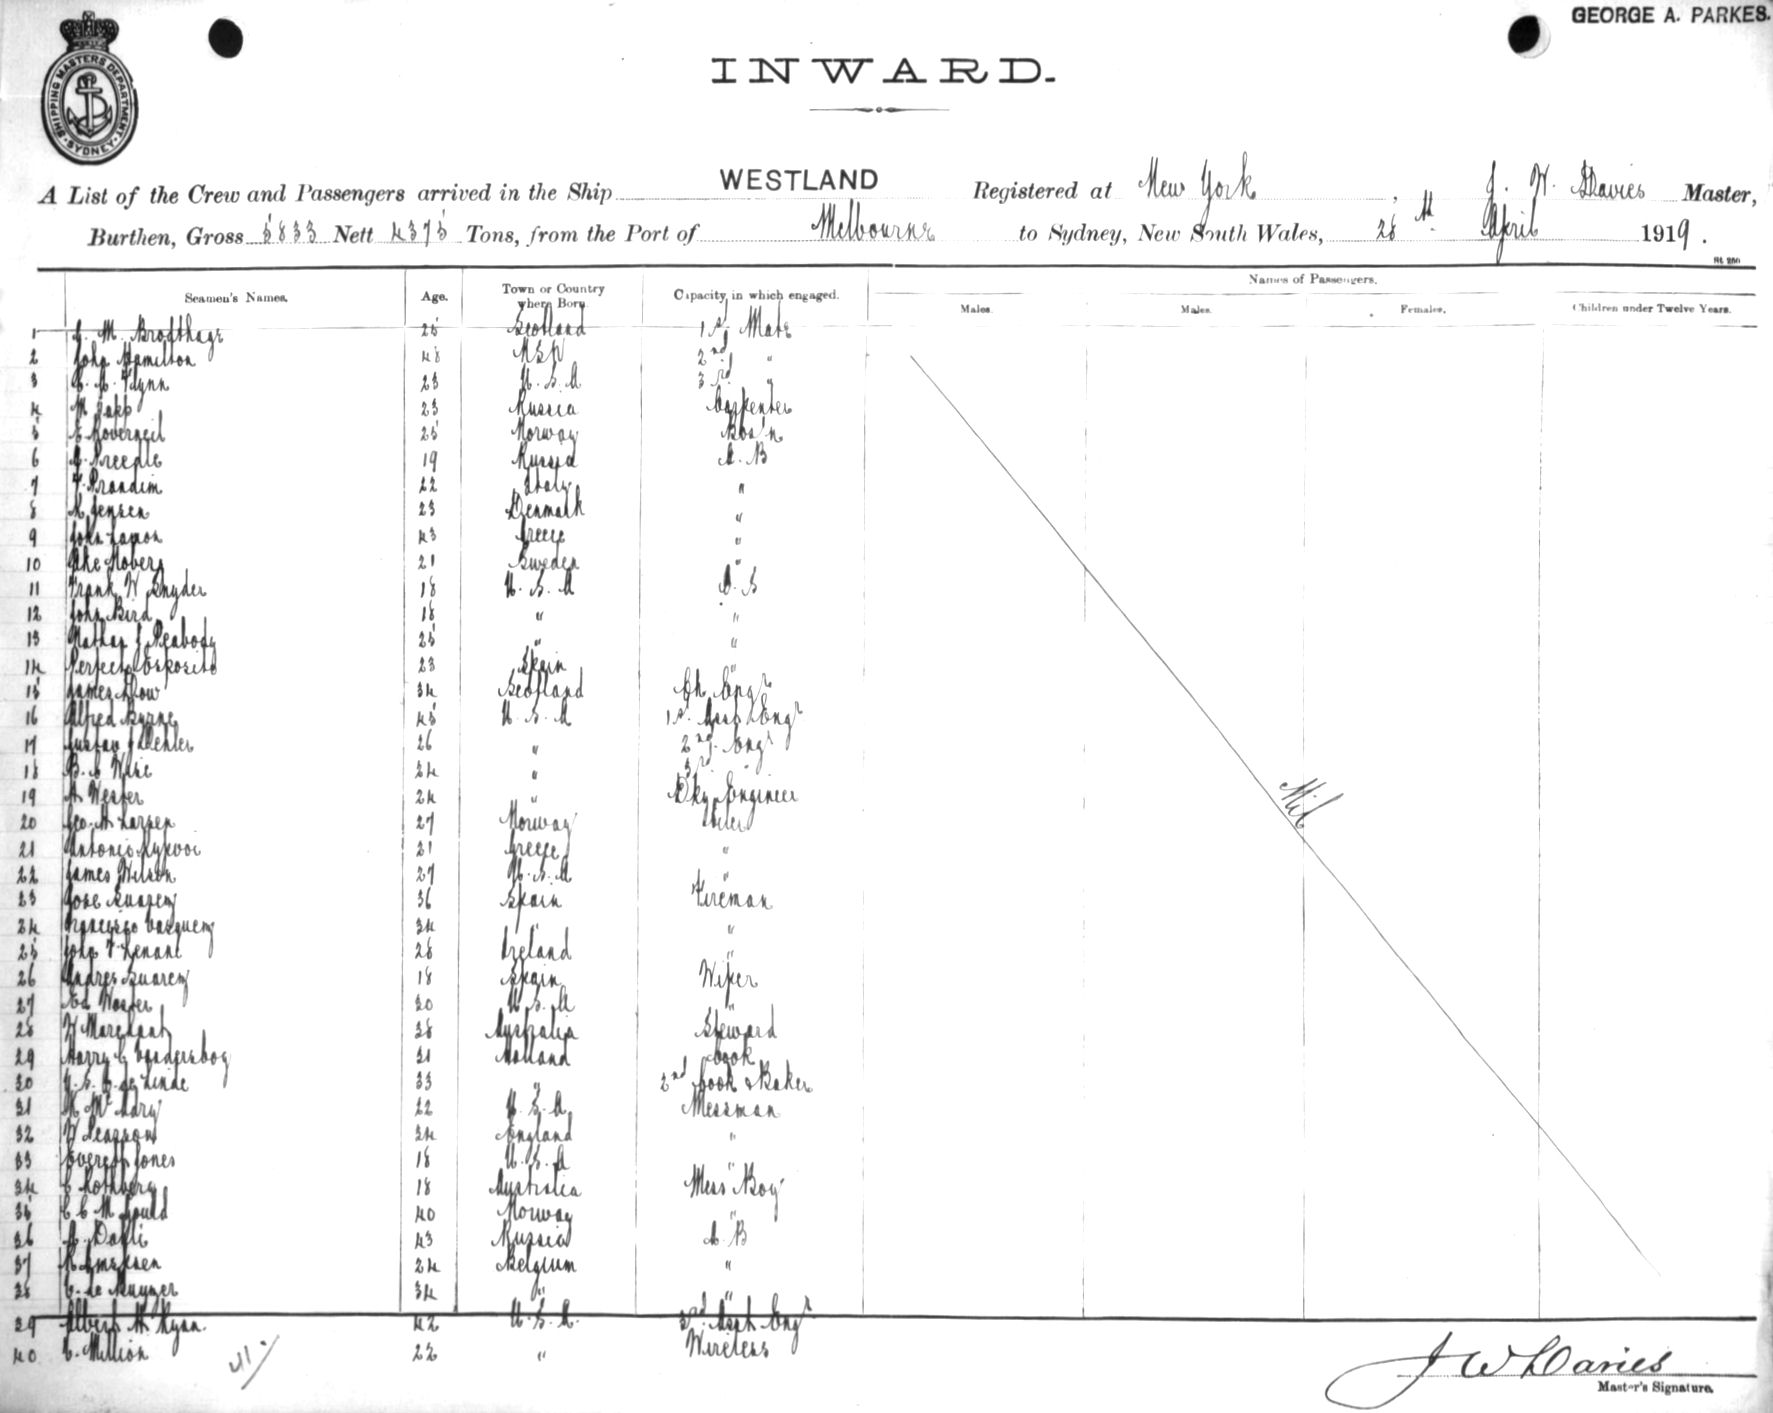 GEORGE A. PARKES.
SHIPPING MASTERS DEPARTMENT SYDNEY
INWARD.
A List of the Crew and Passengers arrived in the Ship WESTLAND Registered at New York, J. W. Davies Master,
Burthen, Gross 5833 Nett 4375 Tons, from the Port of Melbourne to Sydney, New South Wales, 28th April 1919.
Names of Passengers.
Seamen's Names. Age. Town or Country where Born. Capacity in which engaged. Males. Males. Females. Children under Twelve Years.
1 M. 25 Scotland 1st Mate
2 John Hamilton 48 2nd "
3 Flynn 23 U.S.A 3rd "
4 M 23 Russia Carpenter
5 25 Norway Bos'n
6 19 Russia A.B
7 22 Italy "
8 Jensen 23 Denmark "
9 John 43 Greece "
10 Ake Moberg 21 Sweden "
11 Frank W Snyder 18 U.S.A O.S
12 John Bird 18 " "
13 Nathan J Peabody 25 " "
14 Perfecto Esposito 23 Spain "
15 James Dow 34 Scotland Ch Engr
16 Alfred Byrne 45 U.S.A 1st Asst Engr
17 Gustav J 26 " 2nd Engr
18 Wise 24 " 3rd
19 A 24 " Dky Engineer
20 Geo. A Larsen 27 Norway Oiler
21 Antonio 21 Greece "
22 James Wilson 27 U.S.A "
23 Jose Suarez 36 Spain Fireman
24 Francisco Vasquez 34 " "
25 John F Lenane 28 Ireland "
26 Andres Suarez 18 Spain Wiper
27 Ed 20 U.S.A "
28 W Marchant 38 Australia Steward
29 Harry 31 Holland Cook
30 de Linde 33 " 2nd Cook & Baker
31 22 U.S.A Messman
32 W Pearson 34 England "
33 Everett Jones 18 U.S.A "
34 E Rothberg 18 Australia Mess Boy
35 C C M Gould 40 Norway "
36 43 Russia A.B
37 24 Belgium "
38 de 34 " "
39 Albert H. Ryan. 42 U.S.A. 3rd Asst Engr
40 Million 22 " Wireless
Nil
41
J W Davies
Master's Signature.